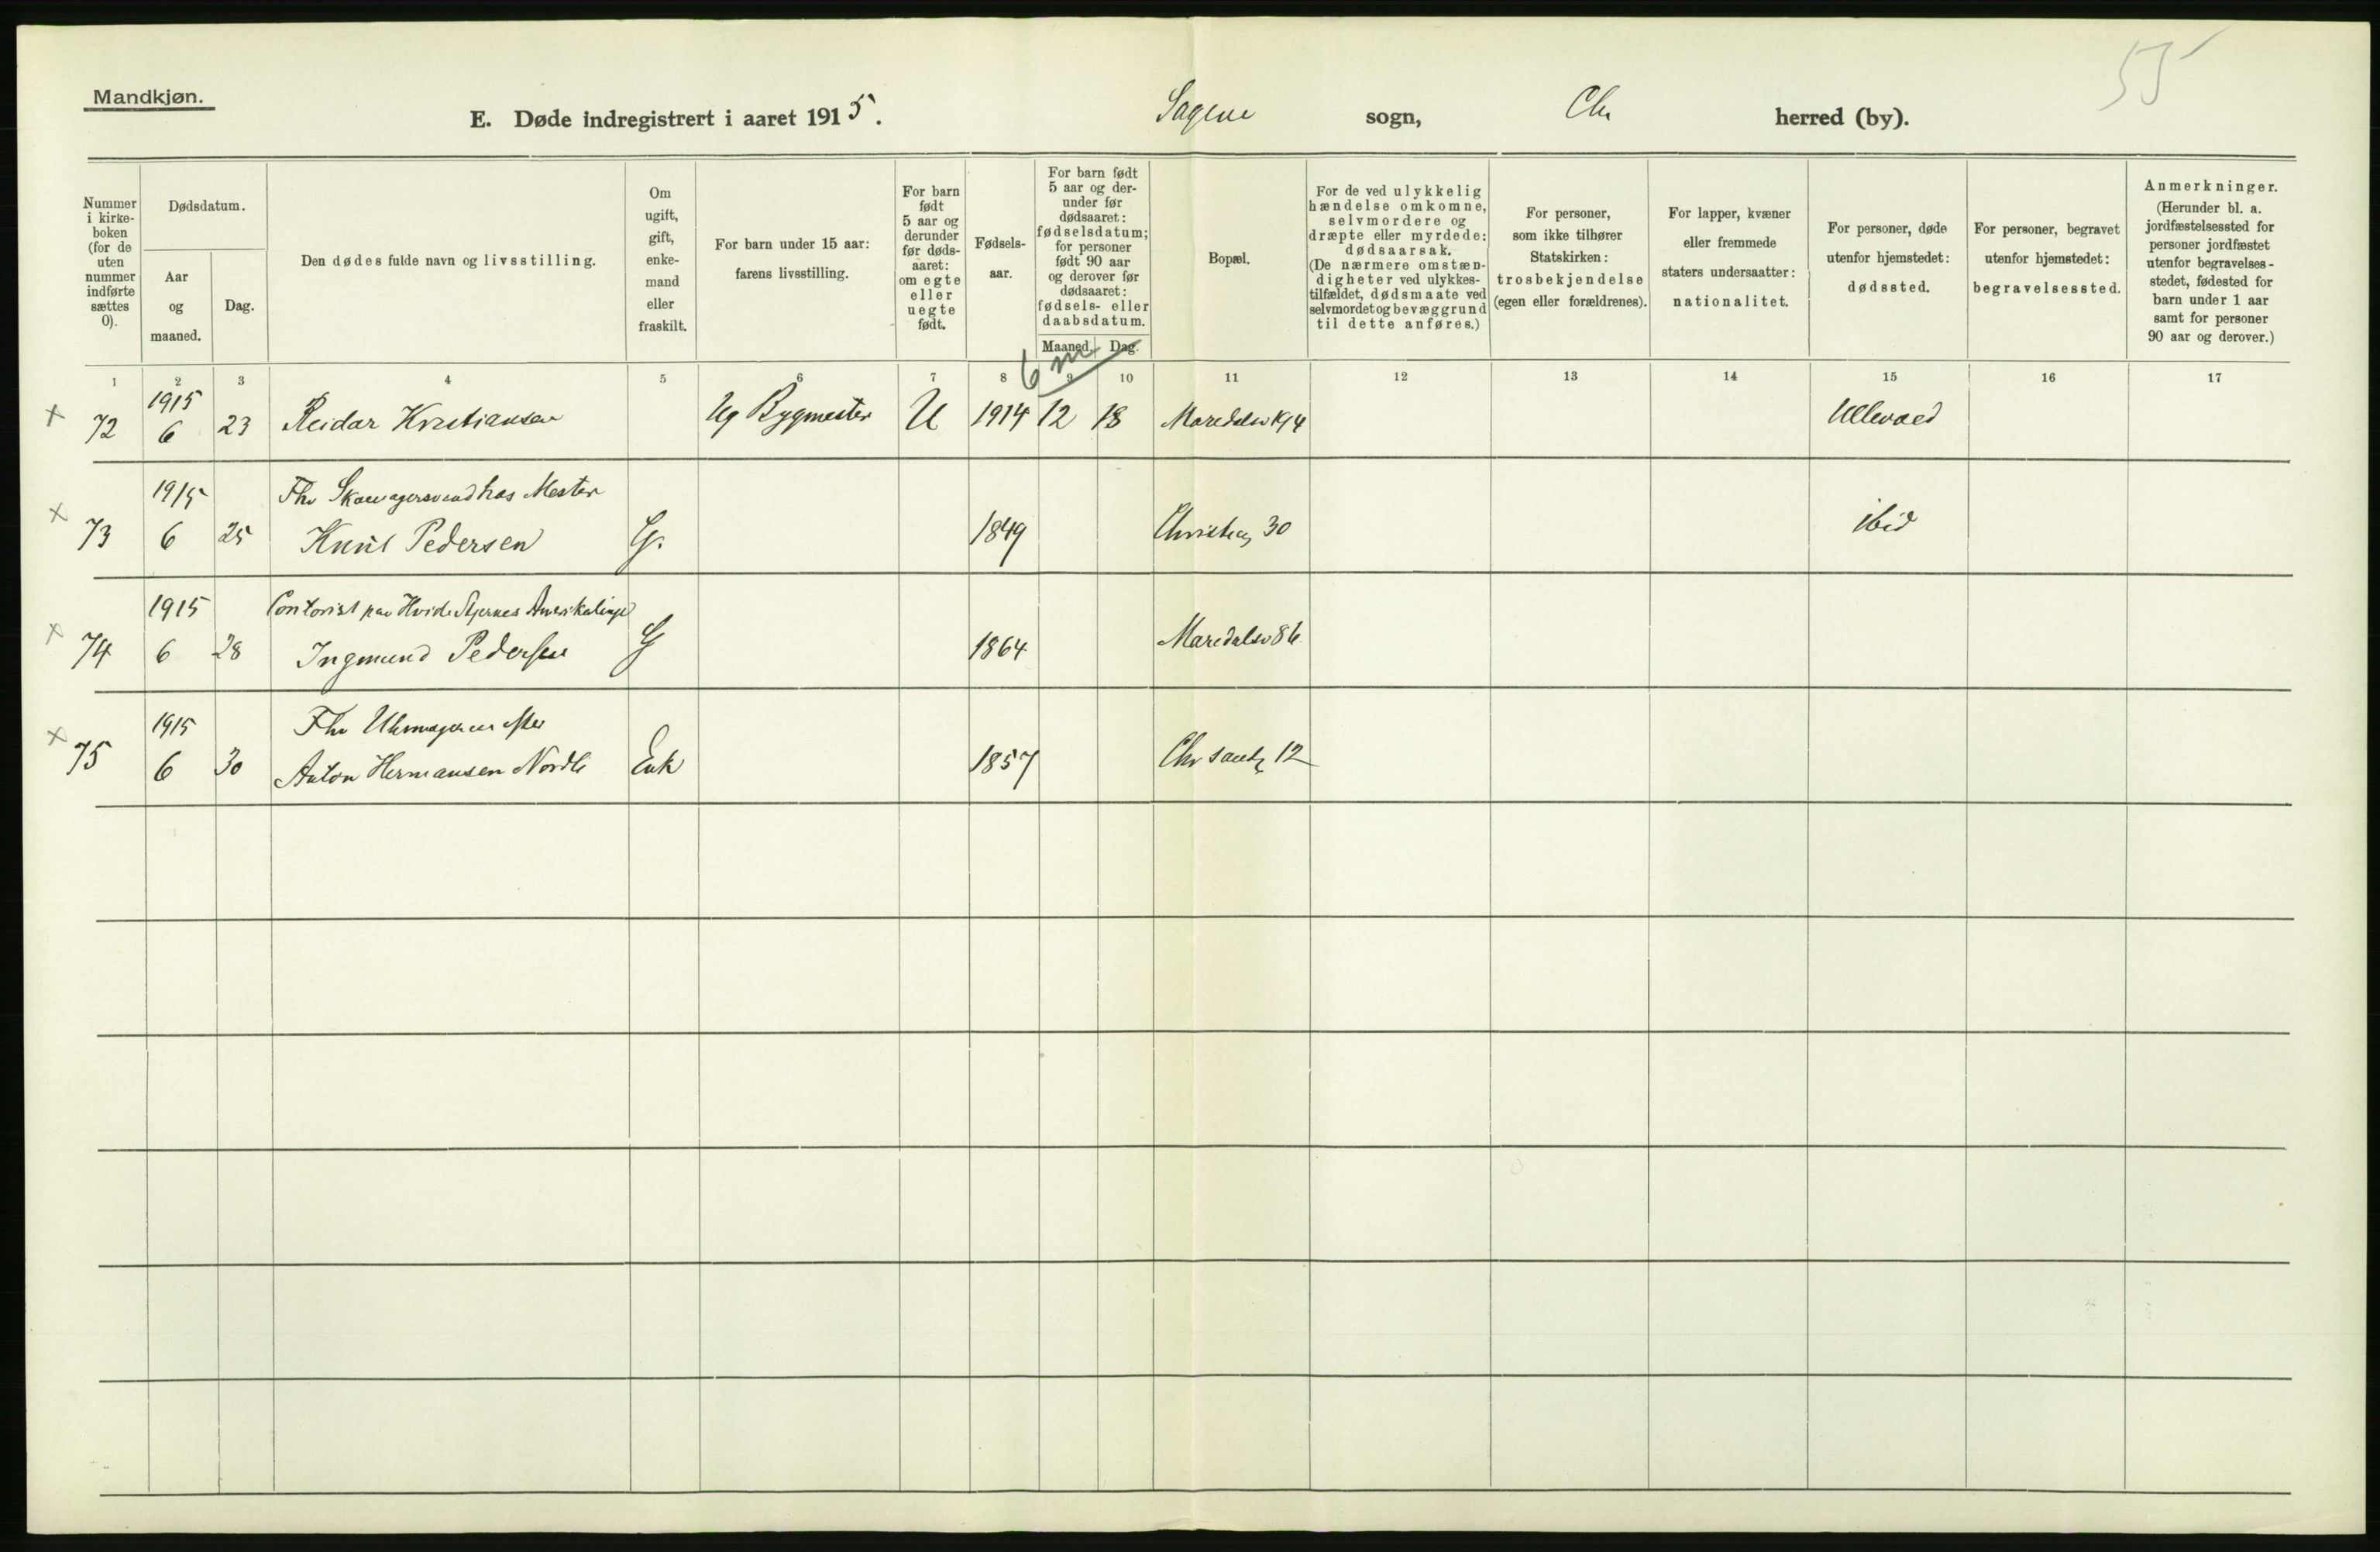 Mandkjøn.
55
E. Døde indregistrert i aaret 1915. Sagene sogn, Chr herred (by).
Nummer i kirke-boken (for de uten nummer indførte sættes 0).
Dødsdatum.
Aar og maaned.
Dag.
Den dødes fulde navn og livsstilling.
Om ugift, gift, enke-mand eller fraskilt.
For barn under 15 aar: farens livsstilling.
For barn født 5 aar og derunder før døds-aaret: om egte eller uegte født.
Fødsels-aar.
For barn født 5 aar og der-under før dødsaaret: fødselsdatum; for personer født 90 aar og derover før dødsaaret: fødsels- eller daabsdatum.
Maaned. Dag.
Bopæl.
For de ved ulykkelig hændelse omkomne, selvmordere og dræpte eller myrdede: dødsaarsak. (De nærmere omstæn-digheter ved ulykkes-tilfældet, dødsmaate ved selvmordet og bevæggrund til dette anføres.)
For personer, som ikke tilhører Statskirken: trosbekjendelse (egen eller forældrenes).
For lapper, kvæner eller fremmede staters undersaatter: nationalitet.
For personer, døde utenfor hjemstedet: dødssted.
For personer, begravet utenfor hjemstedet: begravelsessted.
Anmerkninger. (Herunder bl. a. jordfæstelsessted for personer jordfæstet utenfor begravelses-stedet, fødested for barn under 1 aar samt for personer 90 aar og derover.)
6 m
1 2 3 4 5 6 7 8 9 10 11 12 13 14 15 16 17
1915
× 72 6 23 Reidar Kristiansen Ug Bygmester U 1914 12 18 Maredalsv 194 Ullevaal
1915 Fhv
hos Mester
× 73 6 25 Knut Pedersen G. 1849 30 ibid
1915 Contorist paa Hvide Stjernes Amerikalinje
× 74 6 28 Ingmund Pedersen G 1864 Maredalsv 86
1915 Fhv
× 75 6 30 Anton Hermansen Nordli Enk 1857 12